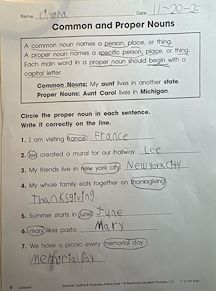 Name Date 11-20-25
Common and Proper Nouns
A common noun names a person, place, or thing.
A proper noun names a specific person, place, or thing.
Each main word in a proper noun should begin with a
capital letter.
Common Nouns: My aunt lives in another state.
Proper Nouns: Aunt Carol lives in Michigan.
Circle the proper noun in each sentence.
Write it correctly on the line.
1. I am visiting france. France
2. lee created a mural for our hallway. Lee
3. My friend lives in new york city. New York City
4. My whole family eats together on thanksgiving.
Thanksgiving
5. Summer starts in june. June
6. mary likes pasta. Mary
7. We have a picnic every memorial day.
Memorial Day